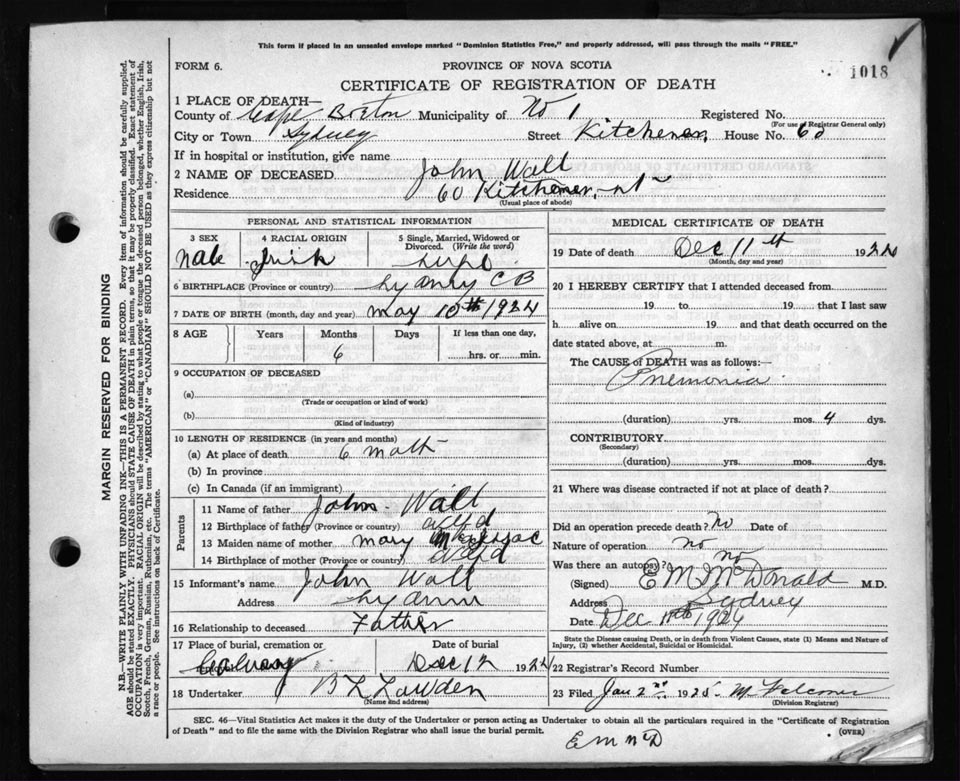 This form if placed in an unsealed envelope marked "Dominion Statistics Free," and properly addressed, will pass through the mails "FREE."
FORM 6.
PROVINCE OF NOVA SCOTIA
1018
CERTIFICATE OF REGISTRATION OF DEATH
1 PLACE OF DEATH—
County of Cape Breton Municipality of No 1 Registered No.
(For use of Registrar General only)
City or Town Sydney Street Kitchener, House No. 60
If in hospital or institution, give name
2 NAME OF DECEASED John Wall
Residence 60 Kitchener, st
(Usual place of abode)
PERSONAL AND STATISTICAL INFORMATION
3 SEX
Male
4 RACIAL ORIGIN
Irish
5 Single, Married, Widowed or Divorced. (Write the word)
6 BIRTHPLACE (Province or country) Sydney CB
7 DATE OF BIRTH (month, day and year) May 10th 1924
8 AGE Years Months Days If less than one day,
6 hrs. or min.
9 OCCUPATION OF DECEASED
(a)
(Trade or occupation or kind of work)
(b)
(Kind of industry)
10 LENGTH OF RESIDENCE (in years and months)
(a) At place of death 6 moth
(b) In province
(c) In Canada (if an immigrant)
Parents
11 Name of father John Wall
12 Birthplace of father (Province or country)
13 Maiden name of mother Mary
14 Birthplace of mother (Province or country)
15 Informant's name John Wall
Address
16 Relationship to deceased Father
17 Place of burial, cremation or Date of burial
Dec 12 1924
18 Undertaker
(Name and address)
MEDICAL CERTIFICATE OF DEATH
19 Date of death Dec 11th 1924
(Month, day and year)
20 I HEREBY CERTIFY that I attended deceased from
19 to 19 that I last saw
h alive on 19 and that death occurred on the
date stated above, at m.
The CAUSE of DEATH was as follows:—
Pnemonia
(duration) yrs. mos. 4 dys.
CONTRIBUTORY
(Secondary)
(duration) yrs. mos. dys.
21 Where was disease contracted if not at place of death?
Did an operation precede death? no Date of
Nature of operation no
Was there an autopsy? no
(Signed) E M McDonald M.D.
Address Sydney
Date Dec 11th 1924
State the Disease causing Death, or in death from Violent Causes, state (1) Means and Nature of Injury, (2) whether Accidental, Suicidal or Homicidal.
22 Registrar's Record Number
23 Filed Jan 2nd 1925 M Falconer
(Division Registrar)
SEC. 46—Vital Statistics Act makes it the duty of the Undertaker or person acting as Undertaker to obtain all the particulars required in the "Certificate of Registration
of Death" and to file the same with the Division Registrar who shall issue the burial permit.
(OVER)
E M McD
MARGIN RESERVED FOR BINDING
N.B.—WRITE PLAINLY WITH UNFADING INK—THIS IS A PERMANENT RECORD. Every item of information should be carefully supplied.
AGE should be stated EXACTLY. PHYSICIANS should STATE CAUSE OF DEATH in plain terms, so that it may be properly classified. Exact statement of
OCCUPATION is very important. RACIAL ORIGIN will be described by stating to what people or tongue the deceased person belonged, whether English, Irish,
Scotch, French, German, Russian, Ruthenian, etc. The terms "AMERICAN" or "CANADIAN" SHOULD NOT BE USED as they express citizenship but not
a race or people. See instructions on back of Certificate.